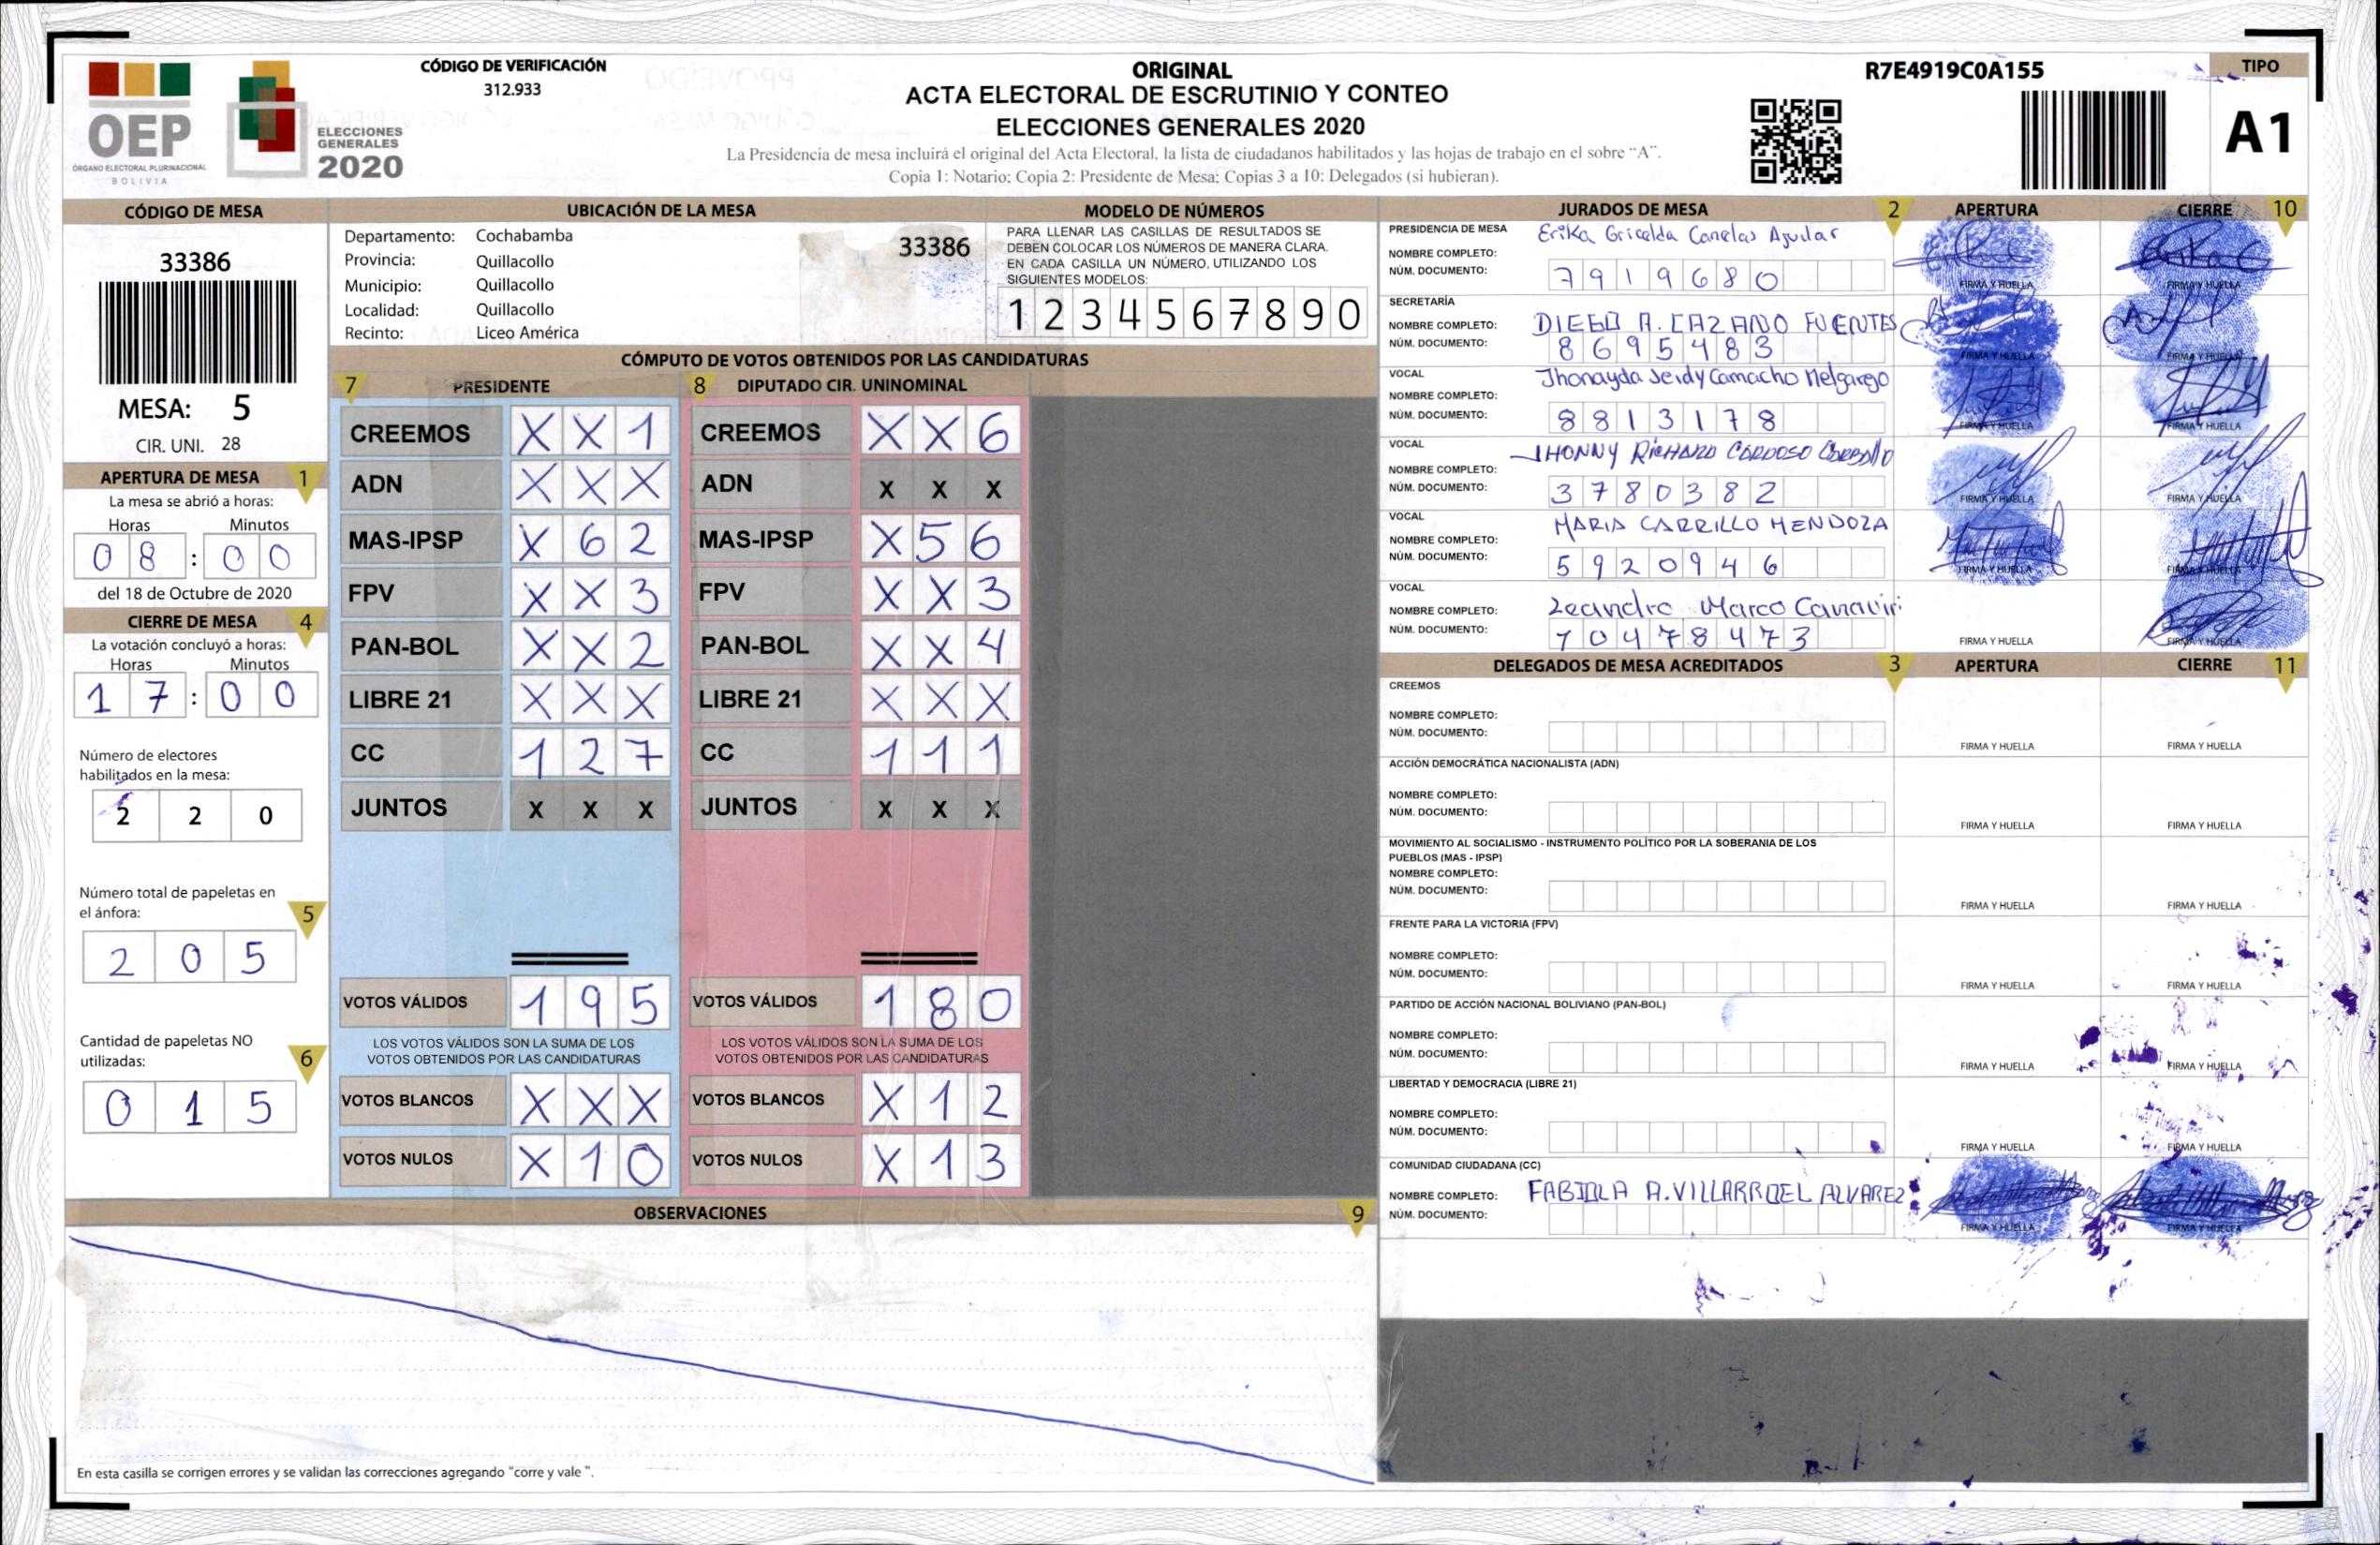 OEP
ÓRGANO ELECTORAL PLURINACIONAL
BOLIVIA
ELECCIONES
GENERALES
2020
CÓDIGO DE VERIFICACIÓN
312.933
ORIGINAL
ACTA ELECTORAL DE ESCRUTINIO Y CONTEO
ELECCIONES GENERALES 2020
La Presidencia de mesa incluirá el original del Acta Electoral, la lista de ciudadanos habilitados y las hojas de trabajo en el sobre “A”.
Copia 1: Notario; Copia 2: Presidente de Mesa; Copias 3 a 10: Delegados (si hubieran).
R7E4919C0A155
TIPO
A1
CÓDIGO DE MESA
33386
MESA: 5
CIR. UNI. 28
APERTURA DE MESA 1
La mesa se abrió a horas:
Horas Minutos
08 : 00
del 18 de Octubre de 2020
CIERRE DE MESA 4
La votación concluyó a horas:
Horas Minutos
17 : 00
Número de electores
habilitados en la mesa:
2 2 0
Número total de papeletas en
el ánfora: 5
2 0 5
Cantidad de papeletas NO
utilizadas: 6
0 1 5
UBICACIÓN DE LA MESA
Departamento: Cochabamba
Provincia: Quillacollo
Municipio: Quillacollo
Localidad: Quillacollo
Recinto: Liceo América
33386
MODELO DE NÚMEROS
PARA LLENAR LAS CASILLAS DE RESULTADOS SE
DEBEN COLOCAR LOS NÚMEROS DE MANERA CLARA.
EN CADA CASILLA UN NÚMERO, UTILIZANDO LOS
SIGUIENTES MODELOS:
1 2 3 4 5 6 7 8 9 0
CÓMPUTO DE VOTOS OBTENIDOS POR LAS CANDIDATURAS
7 PRESIDENTE
CREEMOS X X 1
ADN X X X
MAS-IPSP X 6 2
FPV X X 3
PAN-BOL X X 2
LIBRE 21 X X X
CC 1 2 7
JUNTOS X X X
VOTOS VÁLIDOS 1 9 5
LOS VOTOS VÁLIDOS SON LA SUMA DE LOS
VOTOS OBTENIDOS POR LAS CANDIDATURAS
VOTOS BLANCOS X X X
VOTOS NULOS X 1 0
8 DIPUTADO CIR. UNINOMINAL
CREEMOS X X 6
ADN X X X
MAS-IPSP X 5 6
FPV X X 3
PAN-BOL X X 4
LIBRE 21 X X X
CC 1 1 1
JUNTOS X X X
VOTOS VÁLIDOS 1 8 0
LOS VOTOS VÁLIDOS SON LA SUMA DE LOS
VOTOS OBTENIDOS POR LAS CANDIDATURAS
VOTOS BLANCOS X 1 2
VOTOS NULOS X 1 3
OBSERVACIONES 9
En esta casilla se corrigen errores y se validan las correcciones agregando “corre y vale ”.
JURADOS DE MESA 2 APERTURA CIERRE 10
PRESIDENCIA DE MESA
NOMBRE COMPLETO: Erika Gricelda Canelas Aguilar
NÚM. DOCUMENTO: 7919680
FIRMA Y HUELLA FIRMA Y HUELLA
SECRETARÍA
NOMBRE COMPLETO: DIEGO A. FUENTES
NÚM. DOCUMENTO: 8695483
FIRMA Y HUELLA FIRMA Y HUELLA
VOCAL
NOMBRE COMPLETO: Jhonayda Jeidy Camacho Melgarejo
NÚM. DOCUMENTO: 8813178
FIRMA Y HUELLA FIRMA Y HUELLA
VOCAL
NOMBRE COMPLETO: JHONNY RICHARD CARDOSO
NÚM. DOCUMENTO: 3780382
FIRMA Y HUELLA FIRMA Y HUELLA
VOCAL
NOMBRE COMPLETO: MARIA CARRILLO MENDOZA
NÚM. DOCUMENTO: 5920946
FIRMA Y HUELLA FIRMA Y HUELLA
VOCAL
NOMBRE COMPLETO: Leandro Marco Canaviri
NÚM. DOCUMENTO: 70478473
FIRMA Y HUELLA FIRMA Y HUELLA
DELEGADOS DE MESA ACREDITADOS 3 APERTURA CIERRE 11
CREEMOS
NOMBRE COMPLETO:
NÚM. DOCUMENTO:
FIRMA Y HUELLA FIRMA Y HUELLA
ACCIÓN DEMOCRÁTICA NACIONALISTA (ADN)
NOMBRE COMPLETO:
NÚM. DOCUMENTO:
FIRMA Y HUELLA FIRMA Y HUELLA
MOVIMIENTO AL SOCIALISMO - INSTRUMENTO POLÍTICO POR LA SOBERANIA DE LOS
PUEBLOS (MAS - IPSP)
NOMBRE COMPLETO:
NÚM. DOCUMENTO:
FIRMA Y HUELLA FIRMA Y HUELLA
FRENTE PARA LA VICTORIA (FPV)
NOMBRE COMPLETO:
NÚM. DOCUMENTO:
FIRMA Y HUELLA FIRMA Y HUELLA
PARTIDO DE ACCIÓN NACIONAL BOLIVIANO (PAN-BOL)
NOMBRE COMPLETO:
NÚM. DOCUMENTO:
FIRMA Y HUELLA FIRMA Y HUELLA
LIBERTAD Y DEMOCRACIA (LIBRE 21)
NOMBRE COMPLETO:
NÚM. DOCUMENTO:
FIRMA Y HUELLA FIRMA Y HUELLA
COMUNIDAD CIUDADANA (CC)
NOMBRE COMPLETO: FABIOLA A. VILLARROEL ALVAREZ
NÚM. DOCUMENTO:
FIRMA Y HUELLA FIRMA Y HUELLA